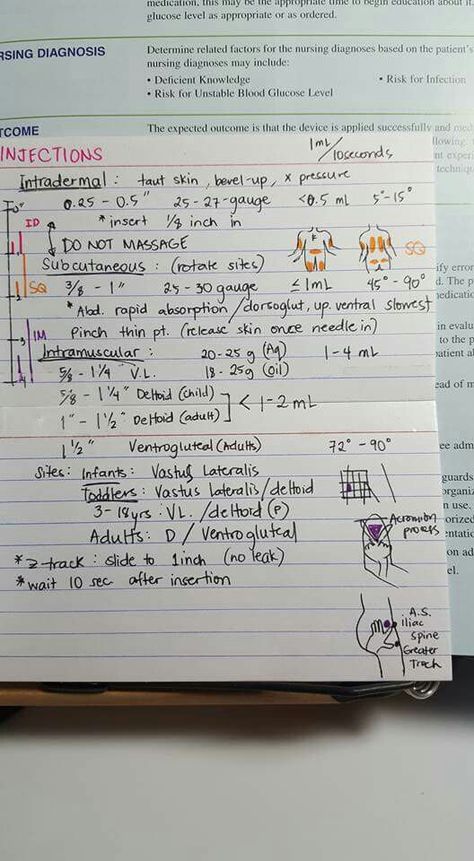 medication, this may be the appropriate time to begin education about it.
glucose level as appropriate or as ordered.
RSING DIAGNOSIS
Determine related factors for the nursing diagnoses based on the patient's
nursing diagnoses may include:
• Deficient Knowledge • Risk for Infection
• Risk for Unstable Blood Glucose Level
TCOME
The expected outcome is that the device is applied successfully and med
INJECTIONS 1mL/10seconds
Intradermal : taut skin, bevel-up, x pressure
0.25 - 0.5" 25-27-gauge <0.5 mL 5°-15°
*insert 1/8 inch in
DO NOT MASSAGE
Subcutaneous : (rotate sites)
3/8 - 1" 25-30 gauge ≤1mL 45°-90°
*Abd. rapid absorption/dorsoglut, up. ventral slowest
Pinch thin pt. (release skin once needle in)
Intramuscular : 20-25g (Aq) 1-4 mL
5/8 - 1 1/4 V.L. 18-25g (oil)
5/8 - 1 1/4" Deltoid (child)
1" - 1 1/2" Deltoid (adult) ] < 1-2 mL
1 1/2" Ventrogluteal (Adults) 72°-90°
Sites: Infants: Vastus Lateralis
Toddlers: Vastus Lateralis/deltoid
3-18yrs: VL./deltoid (P)
Adults: D / Ventrogluteal
*z-track: slide to 1inch (no leak)
*wait 10 sec after insertion
ID
SQ
IM
SQ
Acromion
process
A.S.
iliac
Spine
Greater
Troch
llowing.
nt exper
techniq
ify error
d. The p
nedicatio
in evalu
to the p
patient al
ead of m
ee adm
guards
organiz
n use.
orized
entatio
on ad
el.